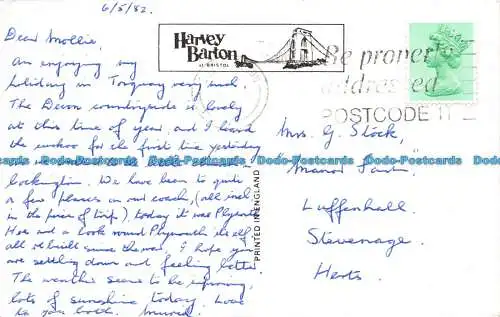 6/5/82.
Dear Mollie,
am enjoying my
holiday in Torquay very much.
The Devon countryside is lovely
at this time of year and I heard
the cuckoo for the first time yesterday
Cockington. We have been to quite
a few places on our coach, (all incl
in the price of trip), today it was Plymouth
Hoe and a look round Plymouth itself,
all rebuilt since the war, I hope you
are settling down and feeling better.
The weather seems to be improving,
lots of sunshine today. Love
to you both.
Harvey
Barton
of BRISTOL
Be proper
addressed
POSTCODE IT
Mrs. G. Stock,
Manor
Luffenhall,
Stevenage,
Herts.
PRINTED IN ENGLAND
Do-Postcards Do-Postcards Do-Postcards Do-Postcards Do-Postcards